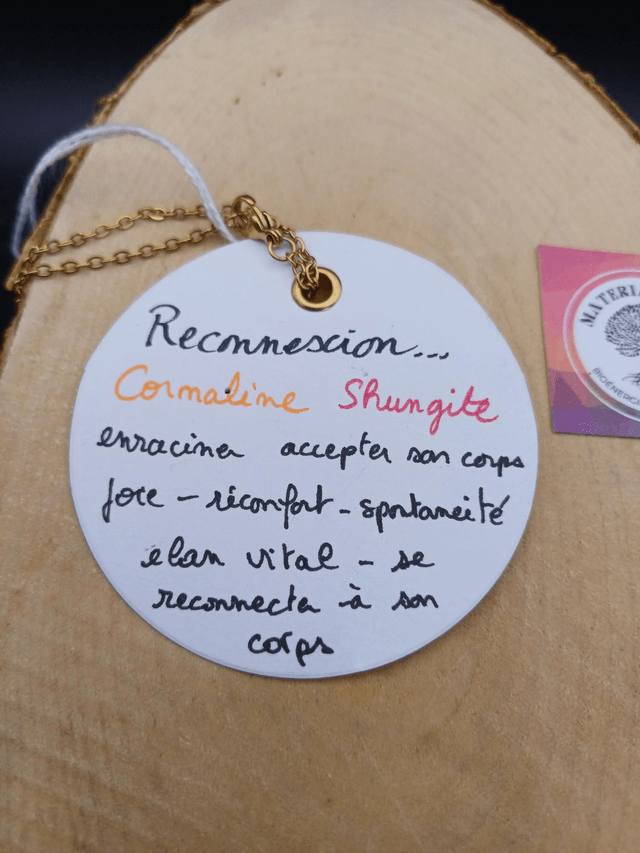 Reconnexion...
Cornaline Shungite
enraciner accepter son corps
joie - réconfort - spontaneité
elan vital - se
reconnecter à son
corps
MATERIA
BIOENERGI